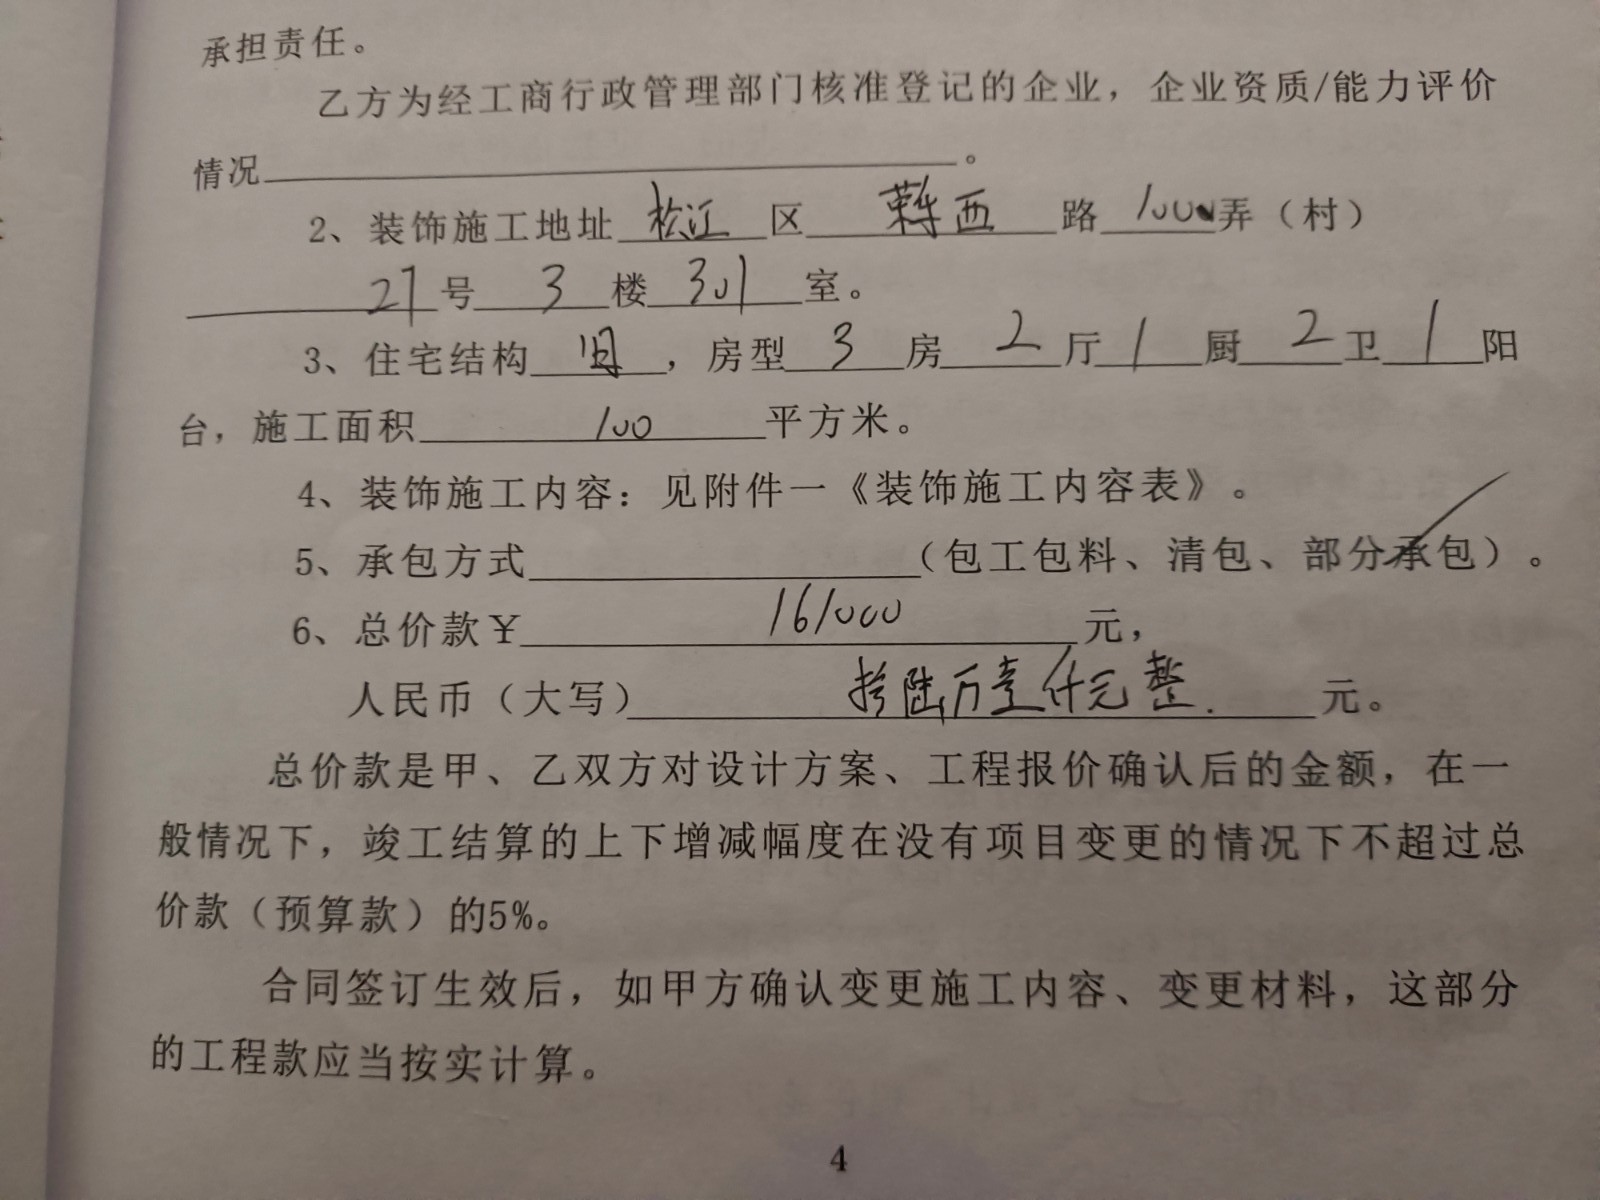 承担责任。
乙方为经工商行政管理部门核准登记的企业，企业资质/能力评价
情况。
2、装饰施工地址 松江 区 西 路 1000 弄（村）
27 号 3 楼 301 室。
3、住宅结构 旧 ，房型 3 房 2 厅 1 厨 2 卫 1 阳
台，施工面积 100 平方米。
4、装饰施工内容：见附件一《装饰施工内容表》。
5、承包方式（包工包料、清包、部分承包）。
6、总价款￥ 161000 元，
人民币（大写） 拾陆万壹仟元整. 元。
总价款是甲、乙双方对设计方案、工程报价确认后的金额，在一
般情况下，竣工结算的上下增减幅度在没有项目变更的情况下不超过总
价款（预算款）的5%。
合同签订生效后，如甲方确认变更施工内容、变更材料，这部分
的工程款应当按实计算。
4